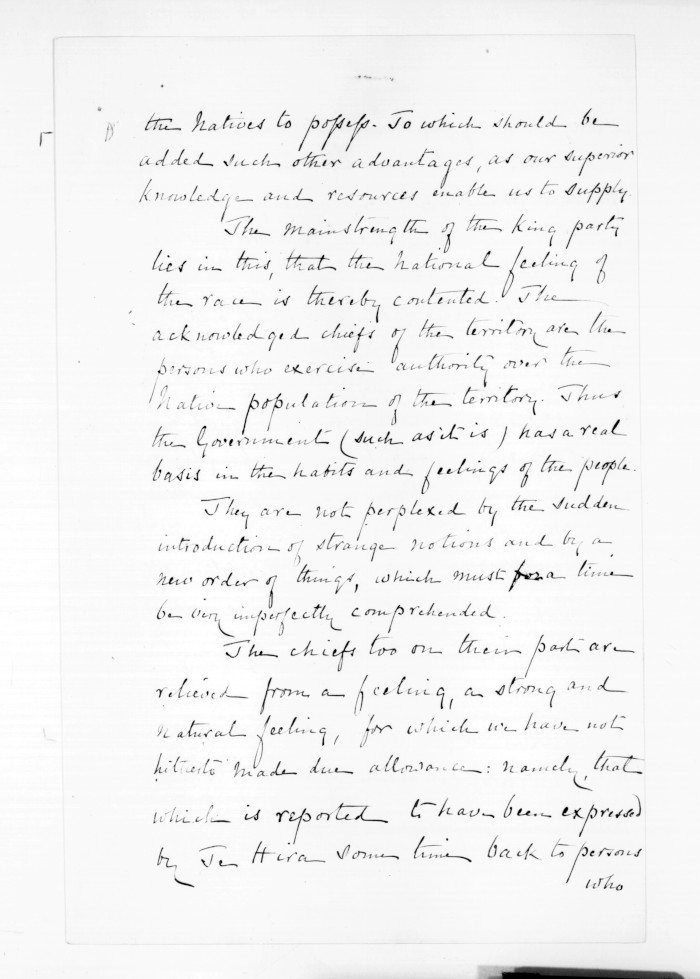 the Natives to possess. To which should be
added such other advantages, as our superior
knowledge and resources enable us to supply.
The mainstrength of the King party
lies in this, that the National feeling of
the race is thereby contented. The
acknowledged chiefs of the territory are the
persons who exercise authority over the
Native population of the territory. Thus
the Government (such as it is) has a real
basis in the habits and feelings of the people.
They are not perplexed by the sudden
introduction of strange notions and by a
new order of things, which must for a time
be very imperfectly comprehended.
The chiefs too on their part are
relieved from a feeling, a strong and
natural feeling, for which we have not
hitherto made due allowance: namely, that
which is reported to have been expressed
by Te Hira some time back to persons
who